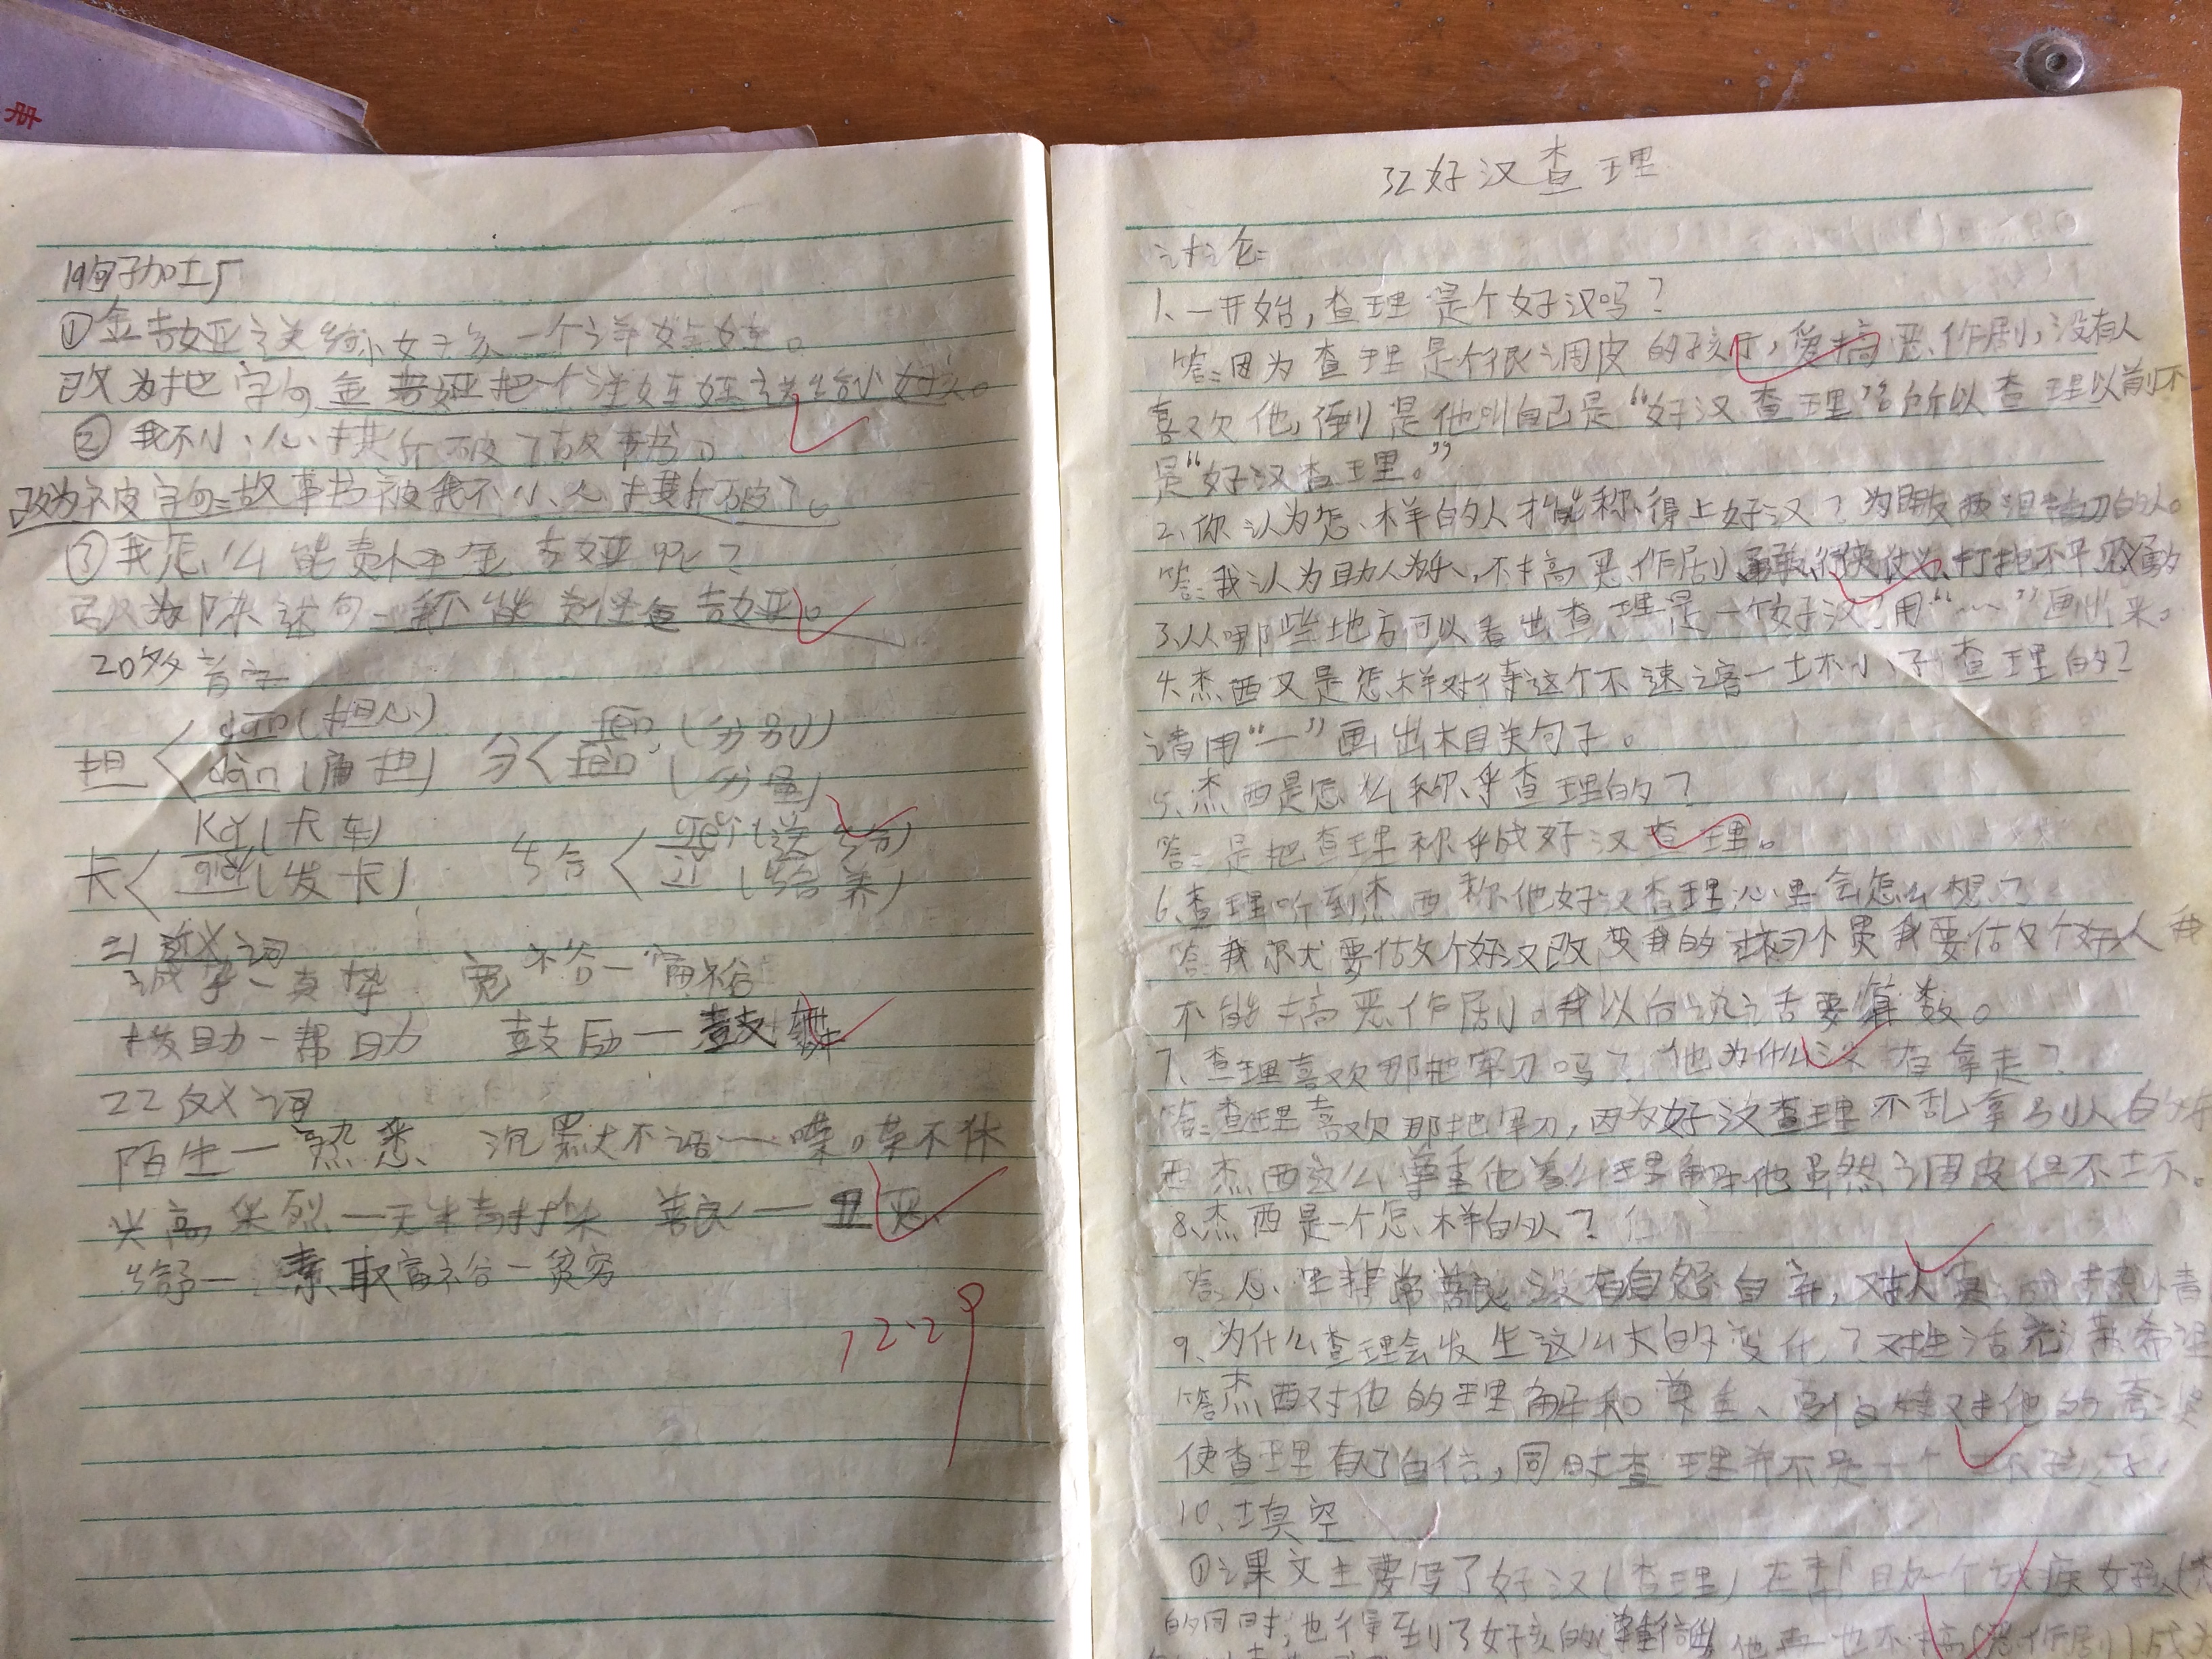 册
19句子加工厂
①金吉娅送给小女孩一个洋娃娃。
改为把字句 金吉娅把一个洋娃娃送给小女孩。
②我不小心撕破了故事书。
改为被字句=故事书被我不小心撕破了。
③我怎么能责怪金吉娅呢?
改为陈述句=我不能责怪金吉娅。
20多音字
担< dān(担心) 分< fēn(分别)
dàn(扁担) fèn(分量)
卡< kǎ(卡车) 给< gěi(送给)
qiǎ(发卡) jǐ(给养)
21近义词
诚挚—真挚 宽裕—富裕
援助—帮助 鼓励—鼓舞
22反义词
陌生—熟悉 沉默不语—喋喋不休
兴高采烈—无精打采 善良—丑恶
给予—索取 富裕—贫穷
12.29
32好汉查理
讨论:
1、一开始,查理是个好汉吗?
答:因为查理是个很调皮的孩子,爱搞恶作剧,没有人
喜欢他,倒是他叫自己是“好汉查理”所以查理以前不
是“好汉查理。”
2、你认为怎样的人才能称得上好汉?为朋友两泪插刀的人。
答:我认为助人为乐,不搞恶作剧 行侠仗义 打抱不平
3、从哪些地方可以看出查理是一个好汉?用“﹏”画出来。
4、杰西又是怎样对待这个不速之客—坏小子查理的?
请用“—”画出相关句子。
5、杰西是怎么称乎查理的?
答:是把查理称乎成好汉查理。
6、查理听到杰西称他好汉查理心里会怎么想?
答:我很要做个好汉改变我的坏习惯我要做个好人我
不能搞恶作剧。我以向说话要算数。
7、查理喜欢那把军刀吗?他为什么没有拿走?
答:查理喜欢那把军刀,因为好汉查理不乱拿别人的东
西杰西这么尊重他着么理解他虽然调皮但不坏。
8、杰西是一个怎样的人?
答:心里非常善良没有自怨自弃,对人真诚热情
9、为什么查理会发生这么大的变化?对生活充满希望
答:杰西对他的理解和尊重、对他的夸奖
使查理有了自信,同时查理并不是一个坏孩子
10、填空
①课文主要写了好汉(查理)在帮助一个残疾女孩(杰
的同时,也得到了女孩的 他再也不搞(恶作剧)成了